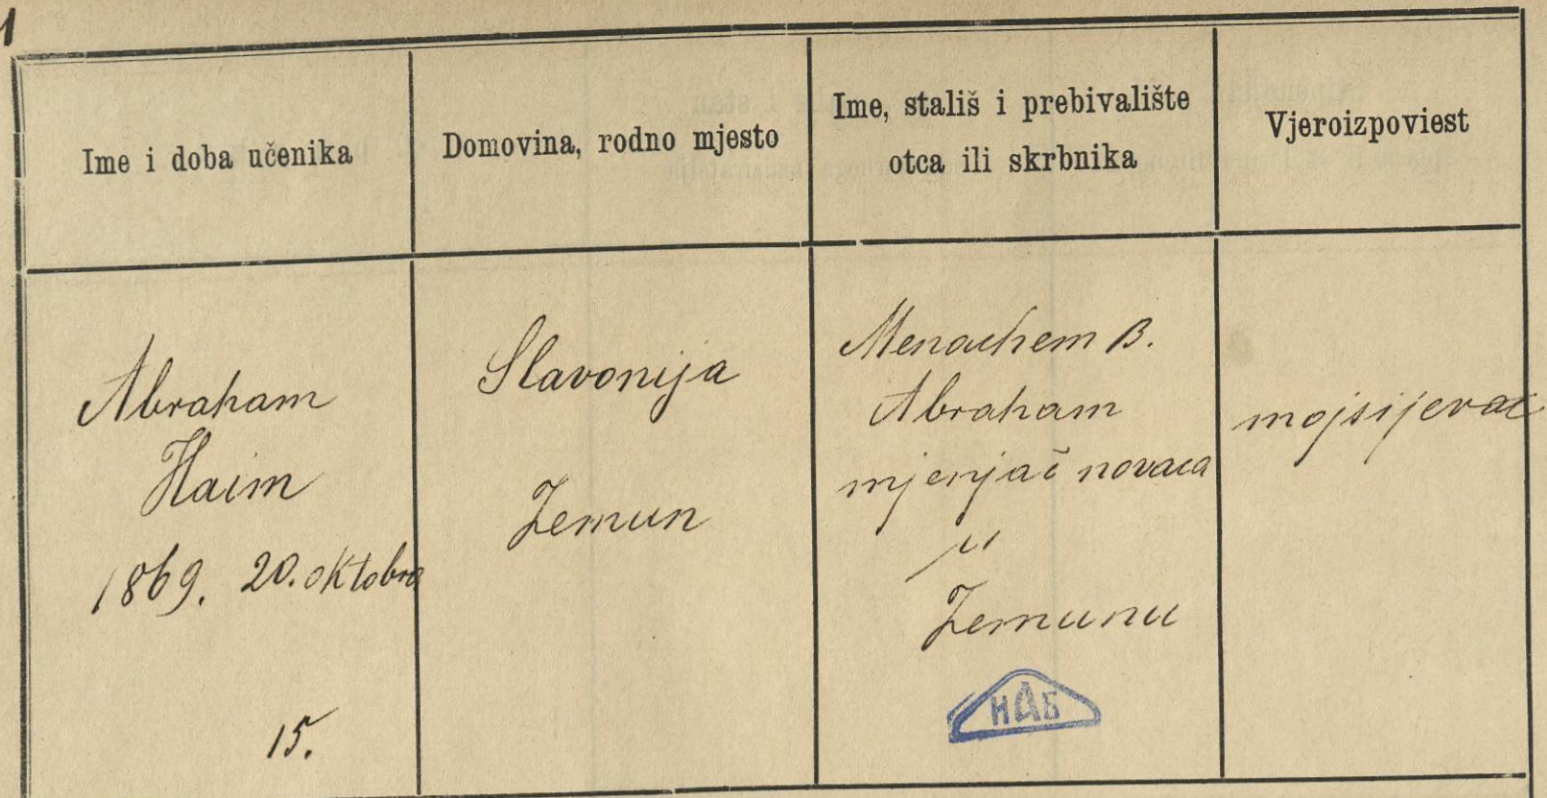 1
Ime i doba učenika
Domovina, rodno mjesto
Ime, stališ i prebivalište
otca ili skrbnika
Vjeroizpoviest
Abraham
Haim
1869. 20. oktobra
15.
Slavonija
Zemun
Menachem B.
Abraham
mjenjač novaca
u
Zemunu
ИАБ
mojsijevac